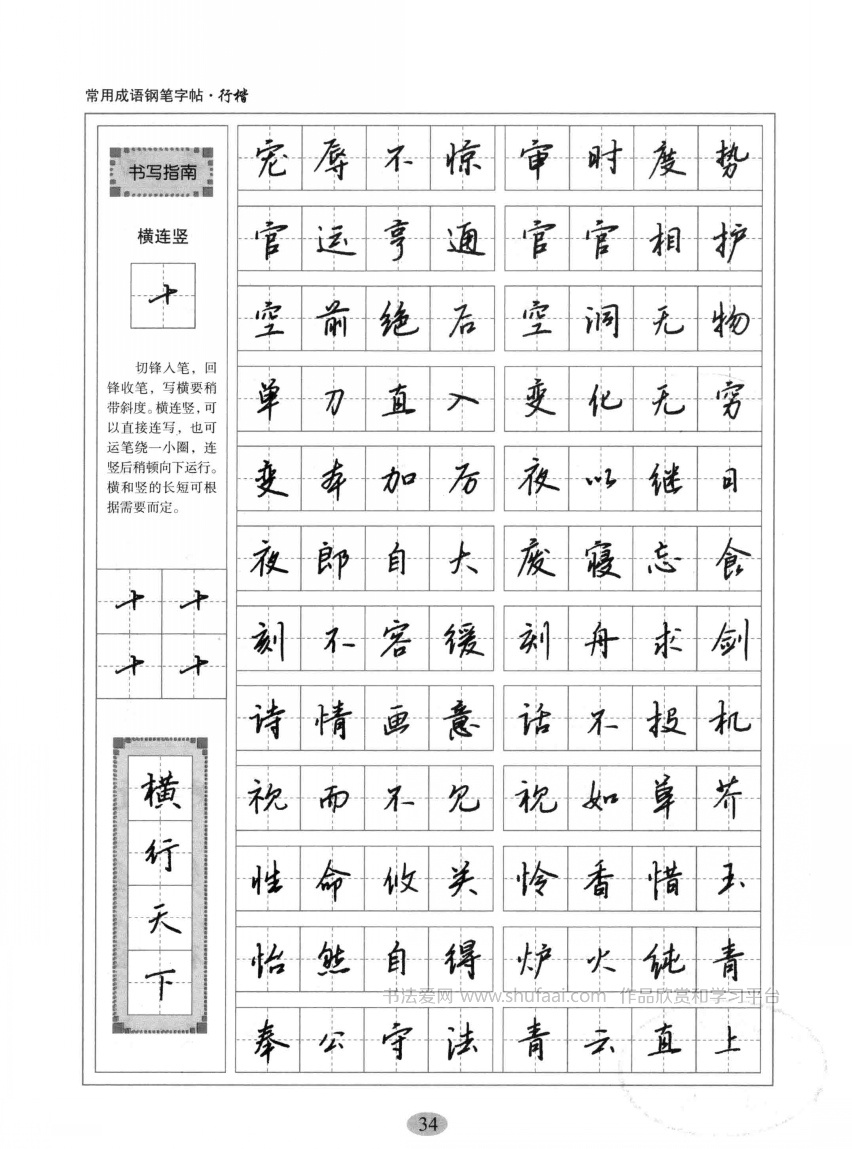 常用成语钢笔字帖·行楷
书写指南
横连竖
十
切锋入笔，回
锋收笔，写横要稍
带斜度。横连竖，可
以直接连写，也可
运笔绕一小圈，连
竖后稍顿向下运行。
横和竖的长短可根
据需要而定。
十 十
十 十
横
行
天
下
宠辱不惊 审时度势
官运亨通 官官相护
空前绝后 空洞无物
单刀直入 变化无穷
变本加厉 夜以继日
夜郎自大 废寝忘食
刻不容缓 刻舟求剑
诗情画意 话不投机
视而不见 视如草芥
性命攸关 怜香惜玉
怡然自得 炉火纯青
书法爱网 www.shufaai.com 作品欣赏和学习平台
奉公守法 青云直上
34